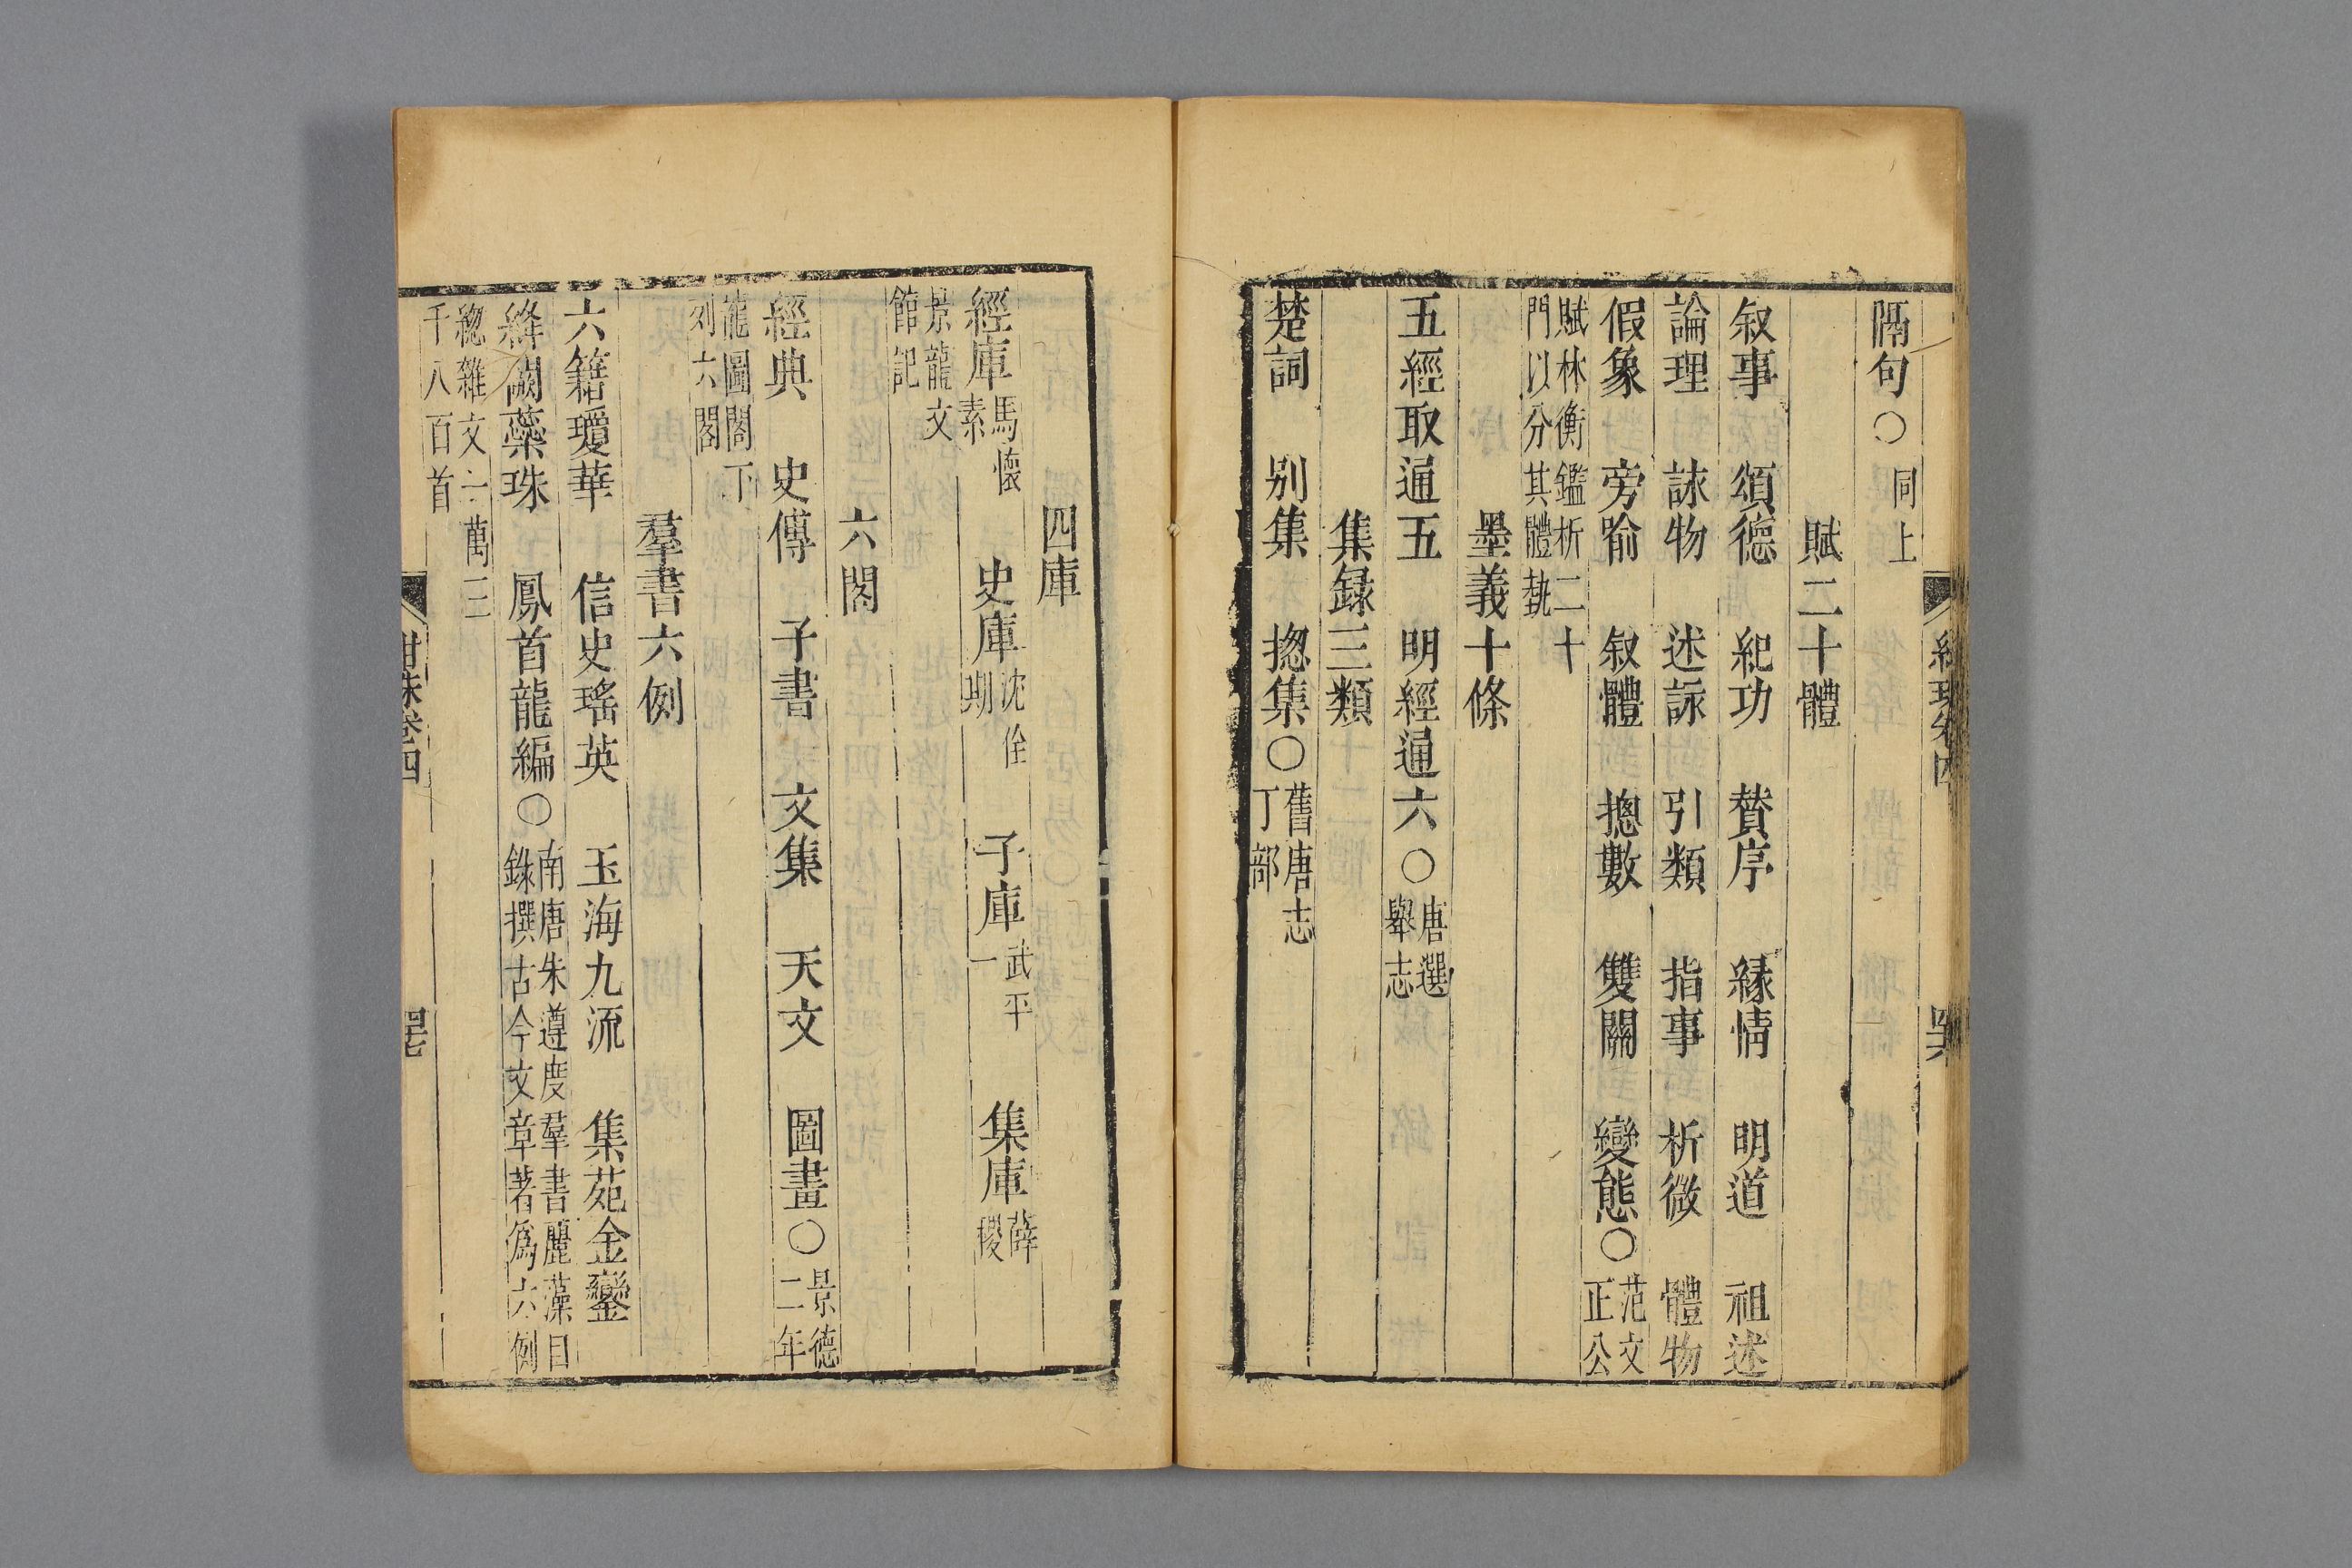 隔句○同上
賦二十體
叙事　頌德　紀功　賛序　緣情　明道　祖述
論理　詠物　述詠　引類　指事　析微　體物
假象　旁喻　叙體　摠數　雙關　變態○范文正公
賦林衡鑑析二十門以分其體埶
墨義十條
五經取通五　明經通六○唐選舉志
集録三類
楚詞　别集　揔集○舊唐志丁部
四庫
經庫馬懷素　史庫沈佺期　子庫武平一　集庫薛稷
景龍文館記
六閣
經典　史傳　子書　文集　天文　圖畫○景德二年
龍圖閣下列六閣
羣書六例
六籍瓊華　信史瑤英　玉海九流　集苑金鑾
絳闕蘂珠　鳳首龍編○南唐朱遵度羣書麗藻目錄撰古今文章著爲六例
緫雜文一萬三千八百首